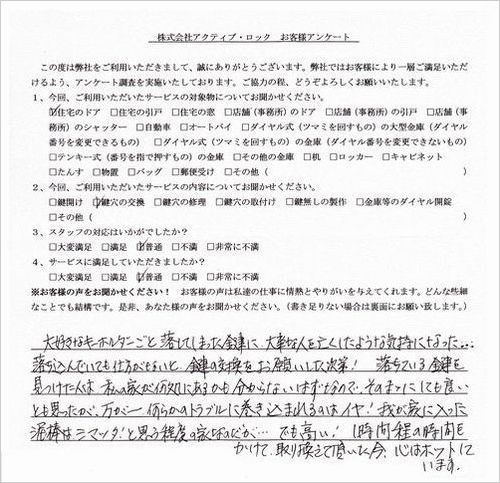 株式会社アクティブ・ロック　お客様アンケート
この度は弊社をご利用いただきまして、誠にありがとうございます。弊社ではお客様により一層ご満足いただ
けるよう、アンケート調査を実施いたしております。ご協力の程、どうぞよろしくお願いいたします。
1、今回、ご利用いただいたサービスの対象物についてお聞かせください。
☑住宅のドア　□住宅の引戸　□住宅の窓　□店舗(事務所)のドア　□店舗(事務所)の引戸　□店舗(事
務所)のシャッター　□自動車　□オートバイ　□ダイヤル式(ツマミを回すもの)の大型金庫(ダイヤル
番号を変更できるもの)　□ダイヤル式(ツマミを回すもの)の金庫(ダイヤル番号を変更できないもの)
□テンキー式(番号を指で押すもの)の金庫　□その他の金庫　□机　□ロッカー　□キャビネット
□たんす　□物置　□バッグ　□郵便受け　□その他(　)
2、今回、ご利用いただいたサービスの内容についてお聞かせください。
□鍵開け　☑鍵穴の交換　□鍵穴の修理　□鍵穴の取付け　□鍵無しの製作　□金庫等のダイヤル開錠
□その他(　)
3、スタッフの対応はいかがでしたか?
□大変満足　□満足　☑普通　□不満　□非常に不満
4、サービスに満足していただきましたか?
□大変満足　□満足　☑普通　□不満　□非常に不満
※お客様の声をお聞かせください!　お客様の声は私達の仕事に情熱とやりがいを与えてくれます。どんな些細
なことでも結構です。是非、あなた様の声をお聞かせください。(書き足りない場合は裏面にお願い致します。)
大好きなキーホルダーごと落としてしまった鍵に、大事な人を亡くしたような気持ちになった…
落ち込んでいても仕方がないと、鍵の交換をお願いした次第!　落ちている鍵を
見つけた人は私の家が何処にあるかも分からないはずなので、そのままにしても良い
とも思ったが、万が一何らかのトラブルに巻き込まれるのはイヤ!我が家に入った
泥棒はシマッタ!と思う程度の家なのだが…でも高い!1時間程の時間を
かけて、取り換えて頂いた今、心はホットして
います。